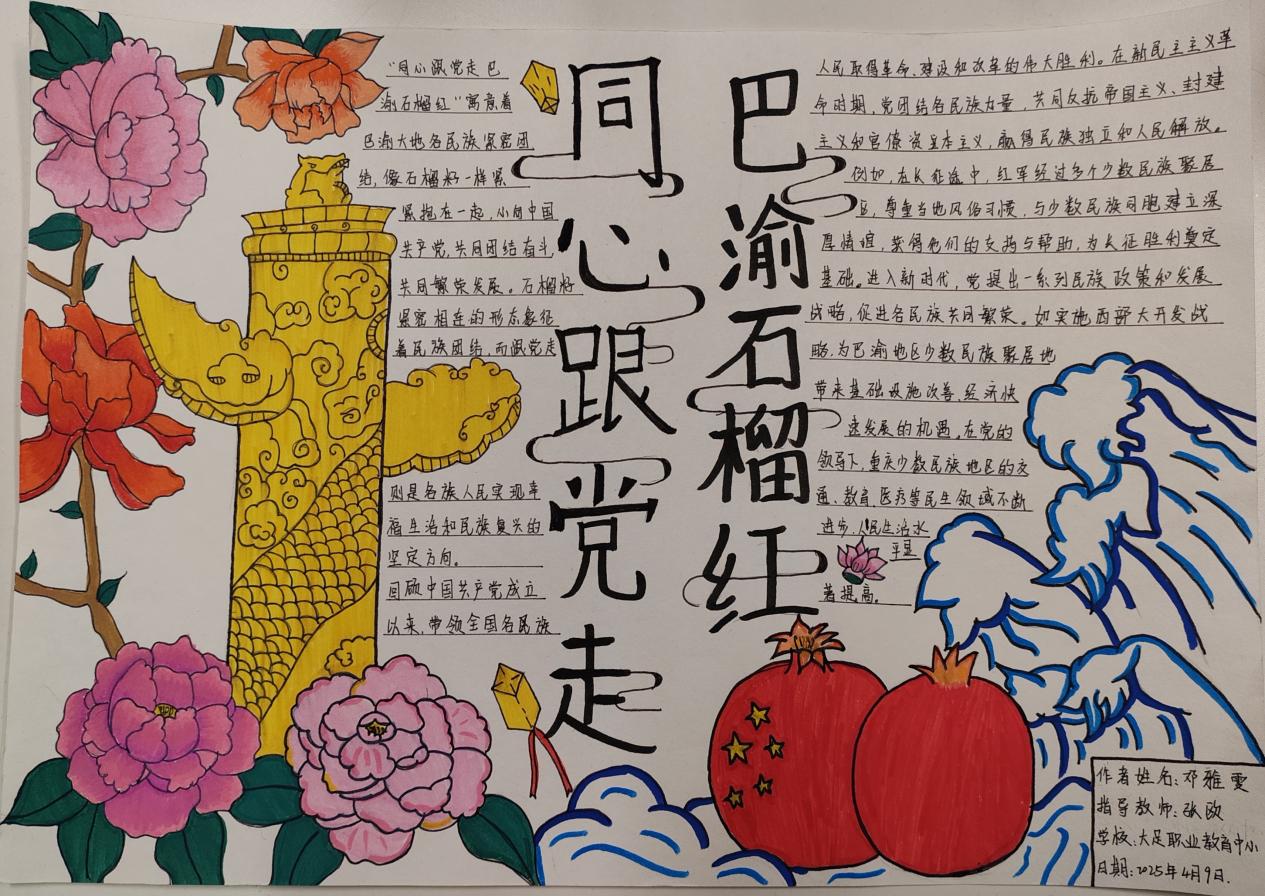 同心跟党走
巴渝石榴红
“同心跟党走 巴
渝石榴红”寓意着
巴渝大地各民族紧密团
结，像石榴籽一样紧
紧抱在一起，心向中国
共产党，共同团结奋斗
共同繁荣发展。石榴籽
紧密相连的形态象征
着民族团结，而跟党走
则是各族人民实现幸
福生活和民族复兴的
坚定方向。
回顾中国共产党成立
以来，带领全国各民族
人民取得革命、建设和改革的伟大胜利。在新民主主义革
命时期，党团结各民族力量，共同反抗帝国主义、封建
主义和官僚资本主义，赢得民族独立和人民解放。
例如，在长征途中，红军经过多个少数民族聚居
区，尊重当地风俗习惯，与少数民族同胞建立深
厚情谊，获得他们的支持与帮助，为长征胜利奠定
基础。进入新时代，党提出一系列民族政策和发展
战略，促进各民族共同繁荣。如实施西部大开发战
略，为巴渝地区少数民族聚居地
带来基础设施改善、经济快
速发展的机遇。在党的
领导下，重庆少数民族地区的交
通、教育、医疗等民生领域不断
进步，人民生活水
平显
著提高。
作者姓名：邓雅雯
指导教师：张欧
学校：大足职业教育中心
日期：2025年4月9日.